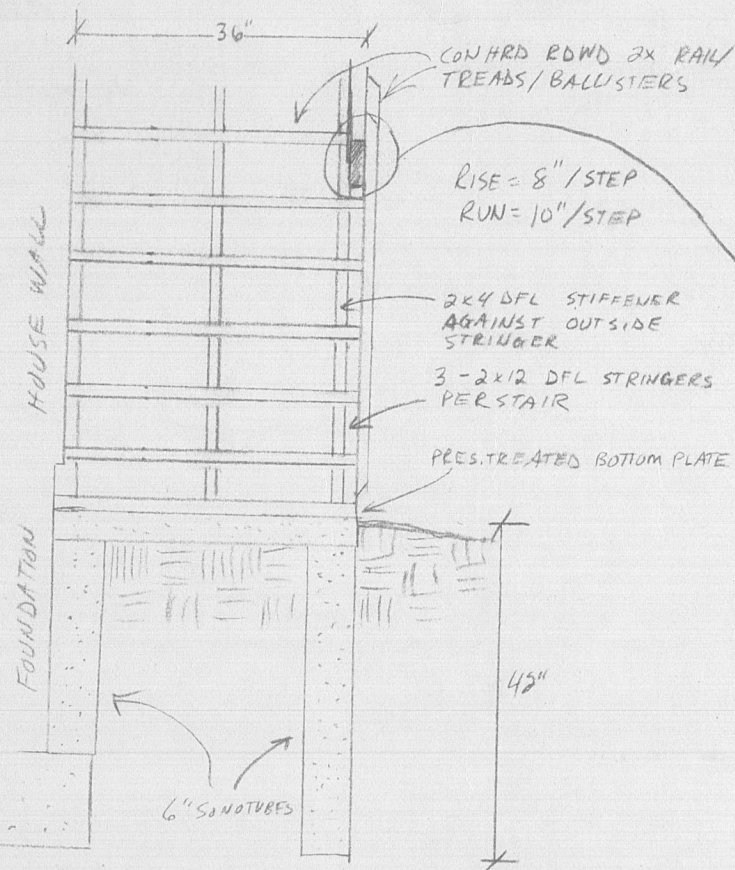 36"
CON HRD RDWD 2X RAIL/
TREADS/BALLISTERS
RISE = 8"/STEP
RUN = 10"/STEP
HOUSE WALL
2x4 DFL STIFFENER
AGAINST OUTSIDE
STRINGER
3-2x12 DFL STRINGERS
PER STAIR
PRES. TREATED BOTTOM PLATE
FOUNDATION
6" SONOTUBES